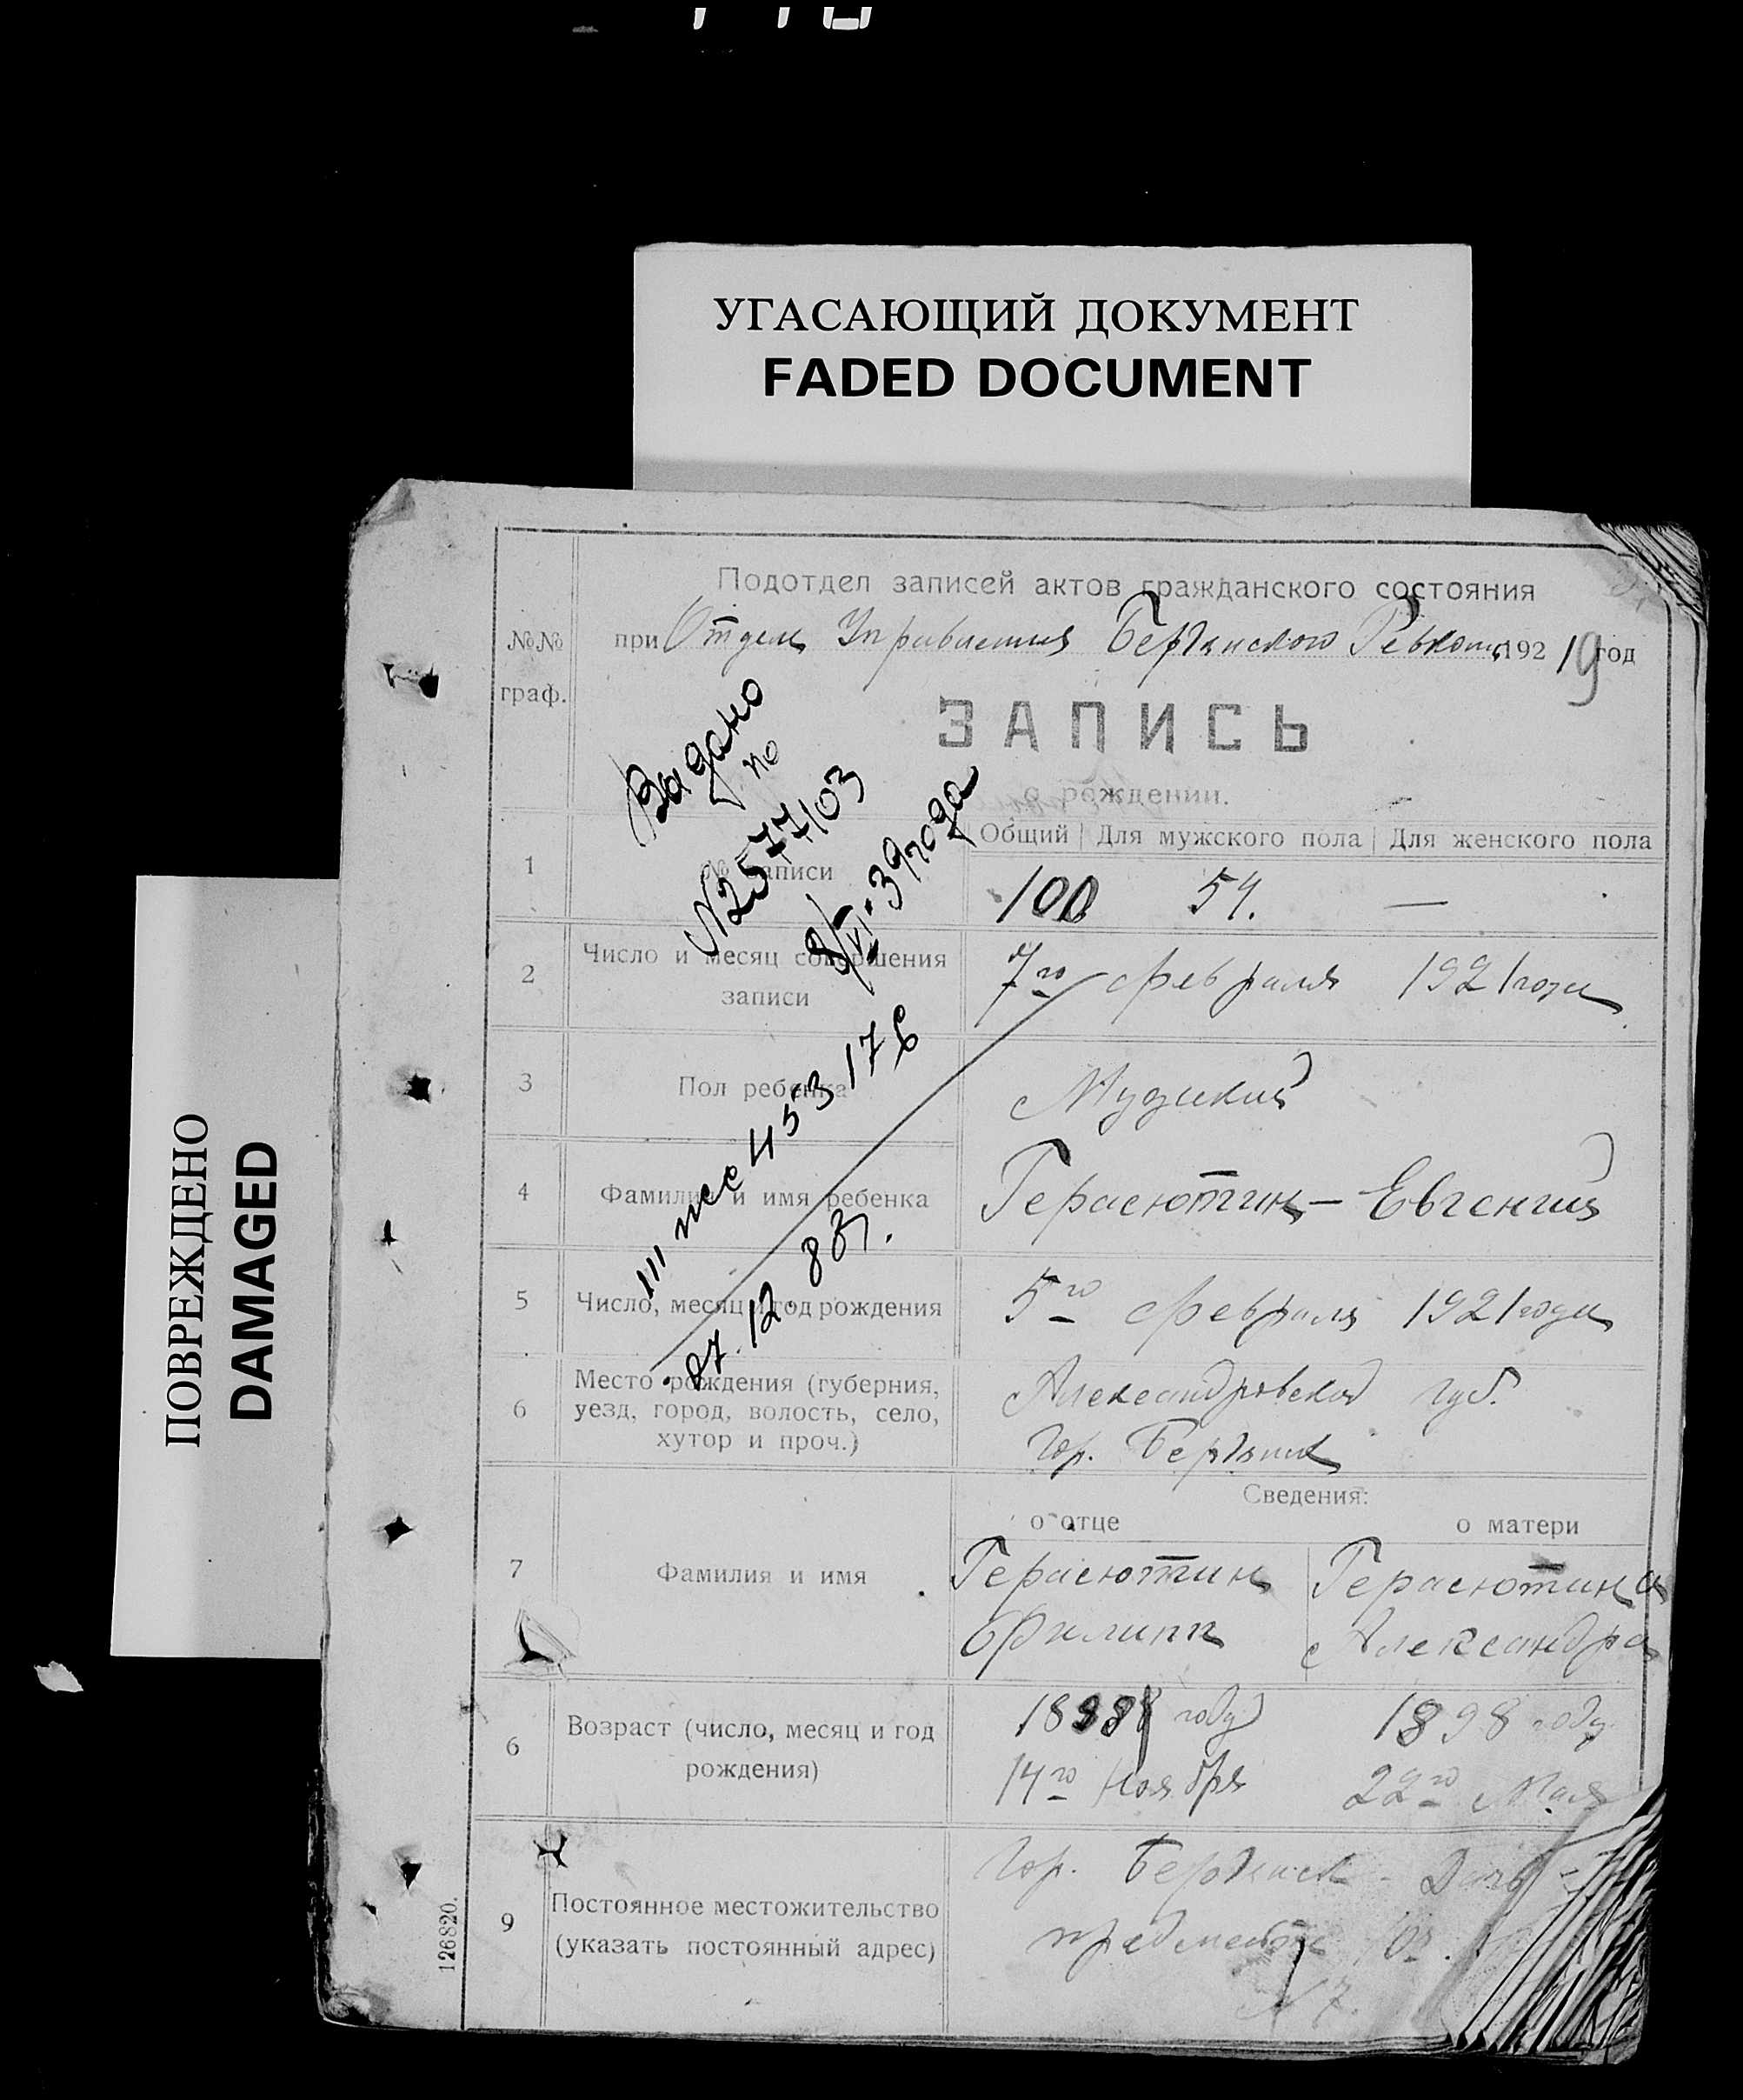 УГАСАЮЩИЙ ДОКУМЕНТ
FADED DOCUMENT
ПОВРЕЖДЕНО
DAMAGED
Подотдел записей актов гражданского состояния
№№ граф.
при Отделе Управления Бердянского Ревкома 1921 год
19
ЗАПИСЬ
о рождении.
Выдано
по
N2577103
8/VI-39 года
III жс 453176
27.12.83г.
Общий | Для мужского пола | Для женского пола
1 № записи 100 54. —
2 Число и месяц совершения записи 7го февраля 1921 года
3 Пол ребенка Мужской
4 Фамилия и имя ребенка Герасютин - Евгений
5 Число, месяц и год рождения 5го февраля 1921 года
6 Место рождения (губерния,
уезд, город, волость, село,
хутор и проч.)
Александровская губ.
гор. Бердянск
Сведения:
о отце о матери
7 Фамилия и имя Герасютин Герасютина
Филипп Александра
6 Возраст (число, месяц и год
рождения)
году 1898 году
14го ноября 22го Мая
9 Постоянное местожительство
(указать постоянный адрес)
Гор. Бердянск
предместье
N 7.
126820.